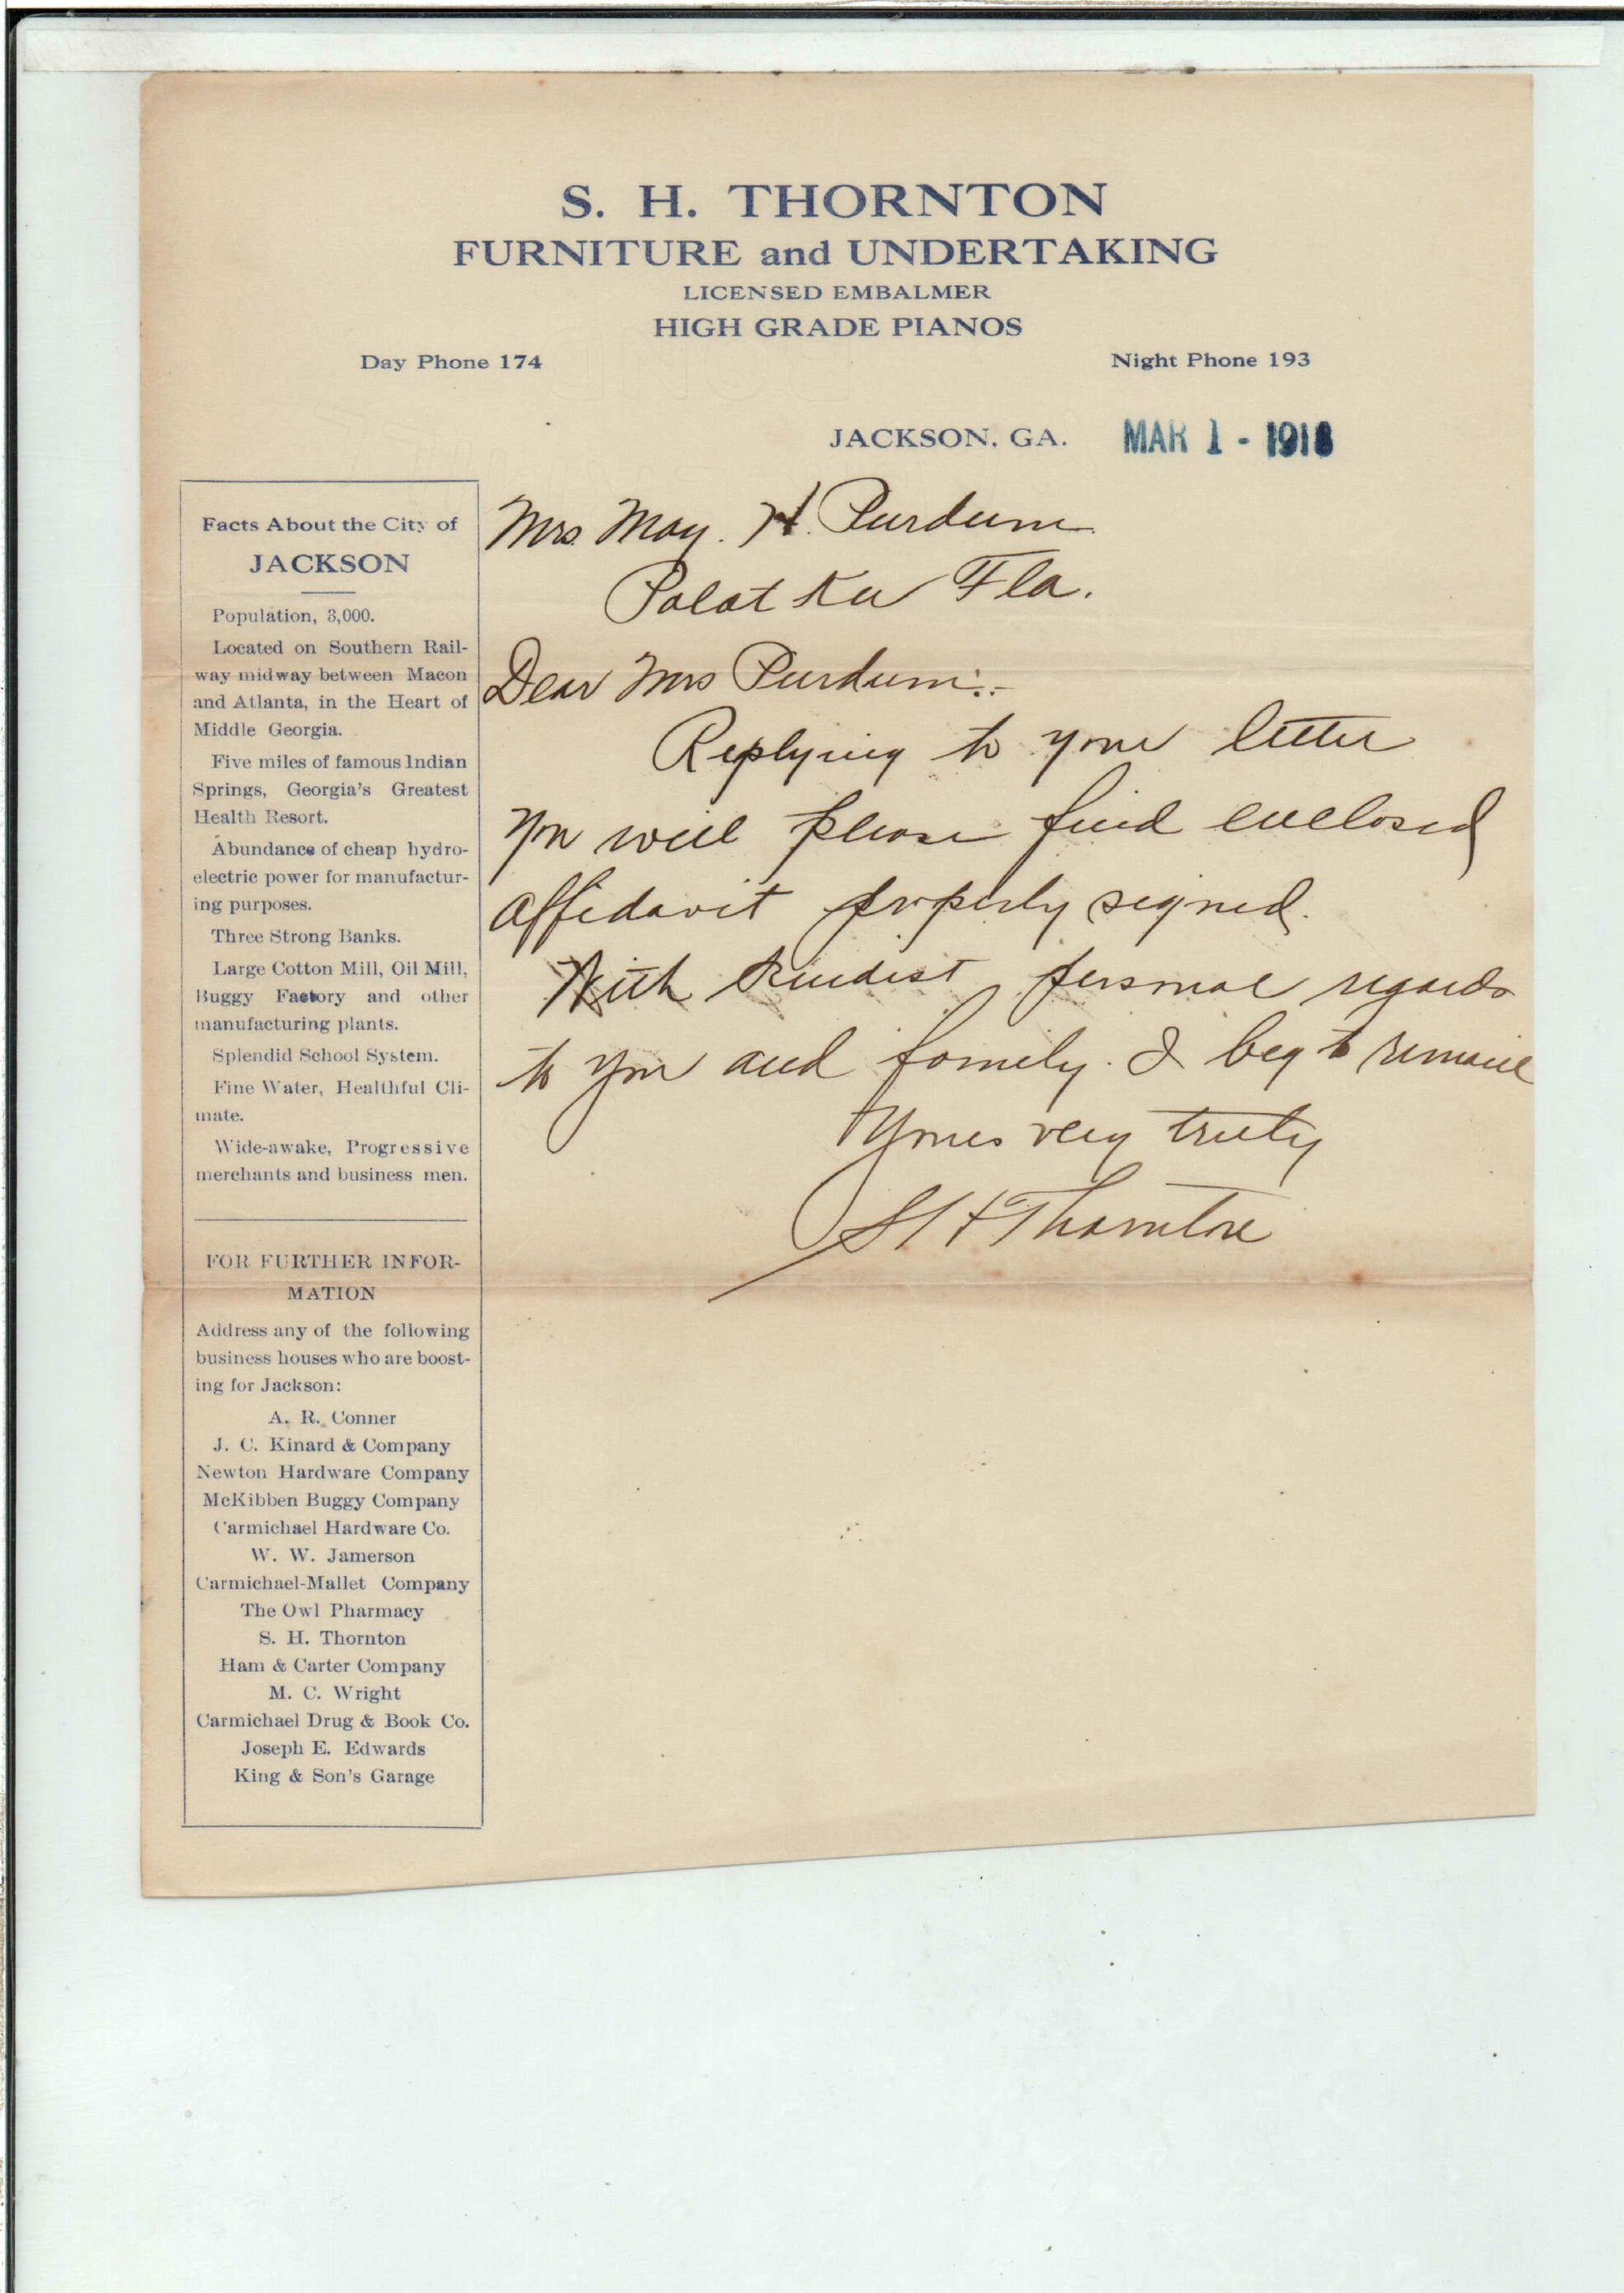 S. H. THORNTON
FURNITURE and UNDERTAKING
LICENSED EMBALMER
HIGH GRADE PIANOS
Day Phone 174
Night Phone 193
JACKSON, GA. MAR 1 - 1918
Mrs May. H. Purdum
Palatka Fla.
Dear Mrs Purdum:-
Replying to your letter
You will please find enclosed
affidavit properly signed.
With kindest personal regards
to you and family. I beg to remain
Yours very truly
S H Thornton
Facts About the City of
JACKSON
Population, 3,000.
Located on Southern Rail-
way midway between Macon
and Atlanta, in the Heart of
Middle Georgia.
Five miles of famous Indian
Springs, Georgia's Greatest
Health Resort.
Abundance of cheap hydro-
electric power for manufactur-
ing purposes.
Three Strong Banks.
Large Cotton Mill, Oil Mill,
Buggy Factory and other
manufacturing plants.
Splendid School System.
Fine Water, Healthful Cli-
mate.
Wide-awake, Progressive
merchants and business men.
FOR FURTHER INFOR-
MATION
Address any of the following
business houses who are boost-
ing for Jackson:
A. R. Conner
J. C. Kinard & Company
Newton Hardware Company
McKibben Buggy Company
Carmichael Hardware Co.
W. W. Jamerson
Carmichael-Mallet Company
The Owl Pharmacy
S. H. Thornton
Ham & Carter Company
M. C. Wright
Carmichael Drug & Book Co.
Joseph E. Edwards
King & Son's Garage